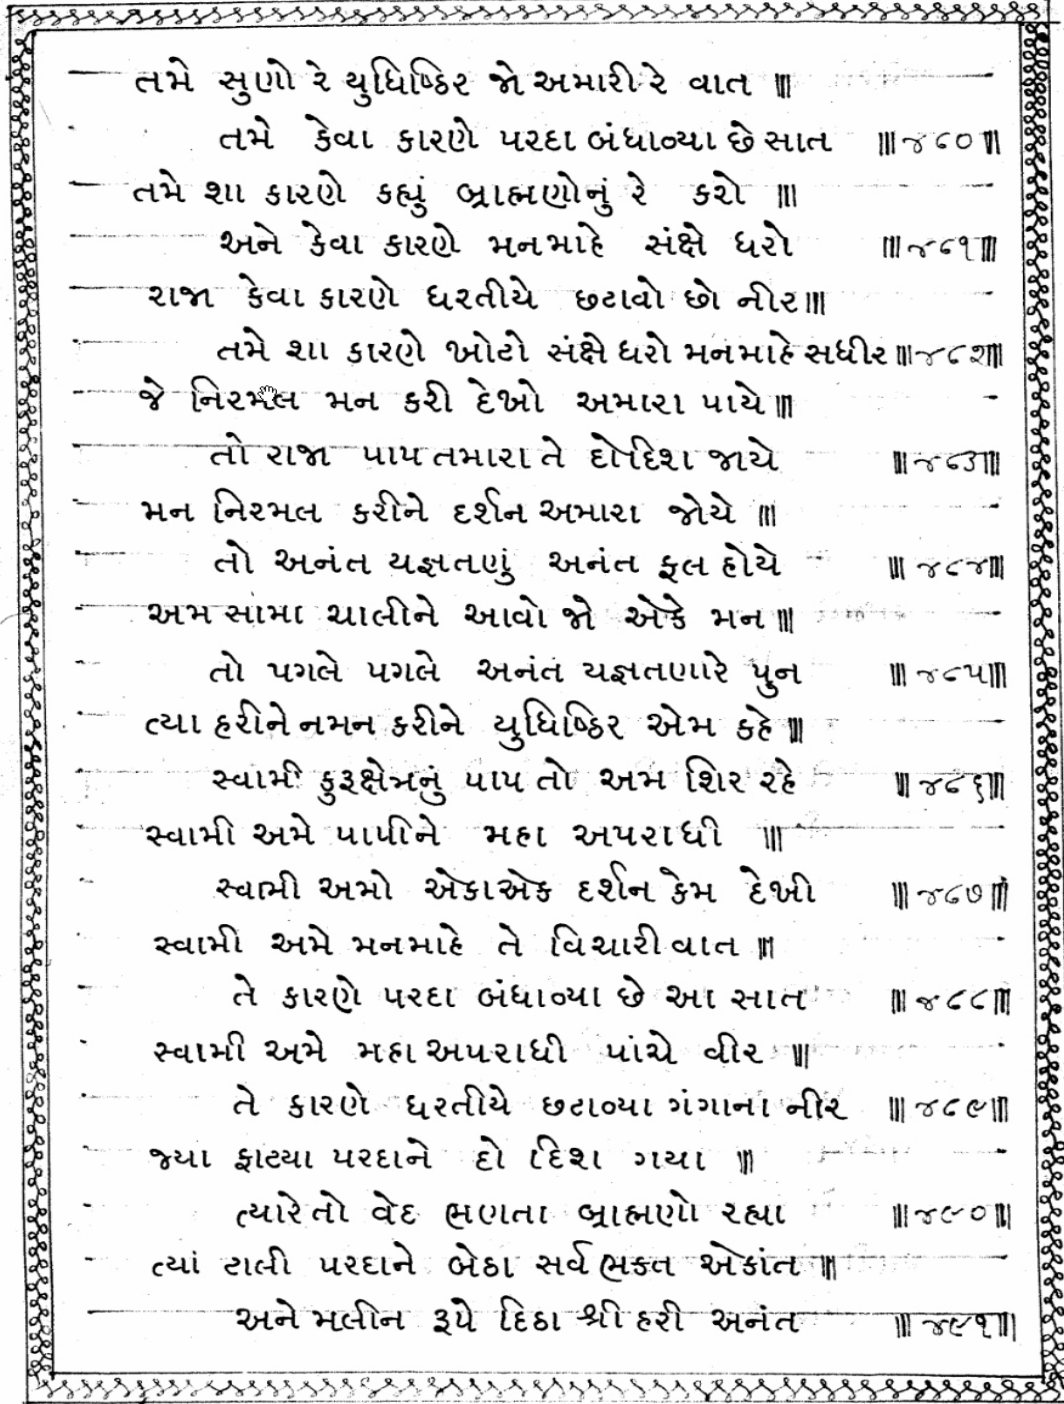 તમે સુણો રે યુધિષ્ઠિર જો અમારી રે વાત ॥
તમે કેવા કારણે પરદા બંધાવ્યા છે સાત ॥૪૮૦॥
તમે શા કારણે કહ્યું બ્રાહ્મણોનું રે કરો ॥
અને કેવા કારણે મનમાહે સંક્ષે ધરો ॥૪૮૧॥
રાજા કેવા કારણે ધરતીયે છટાવો છો નીર॥
તમે શા કારણે ખોટો સંક્ષે ધરો મનમાહે સધીર ॥૪૮૨॥
જે નિરમલ મન કરી દેખો અમારા પાયે॥
તો રાજા પાપ તમારા તે દોદિશ જાયે ॥૪૮૩॥
મન નિરમલ કરીને દર્શન અમારા જોયે ॥
તો અનંત યજ્ઞતણું અનંત ફલ હોયે ॥૪૮૪॥
અમ સામા ચાલીને આવો જો એકે મન॥
તો પગલે પગલે અનંત યજ્ઞતણારે પુન ॥૪૮૫॥
ત્યા હરીને નમન કરીને યુધિષ્ઠિર એમ કહે॥
સ્વામી કુરૂક્ષેત્રનું પાપ તો અમ શિર રહે ॥૪૮૬॥
સ્વામી અમે પાપીને મહા અપરાધી ॥
સ્વામી અમો એકાએક દર્શન કેમ દેખી ॥૪૮૭॥
સ્વામી અમે મનમાહે તે વિચારી વાત ॥
તે કારણે પરદા બંધાવ્યા છે આ સાત ॥૪૮૮॥
સ્વામી અમે મહા અપરાધી પાંચે વીર ॥
તે કારણે ધરતીયે છટાવ્યા ગંગાના નીર ॥૪૮૯॥
જ્યા ફાટયા પરદાને દો દિશ ગયા ॥
ત્યારેતો વેદ ભણતા બ્રાહ્મણો રહ્યા ॥૪૯૦॥
ત્યાં ટાલી પરદાને બેઠા સર્વ ભક્ત એકાંત ॥
અને મલીન રૂપે દિઠા શ્રી હરી અનંત ॥૪૯૧॥